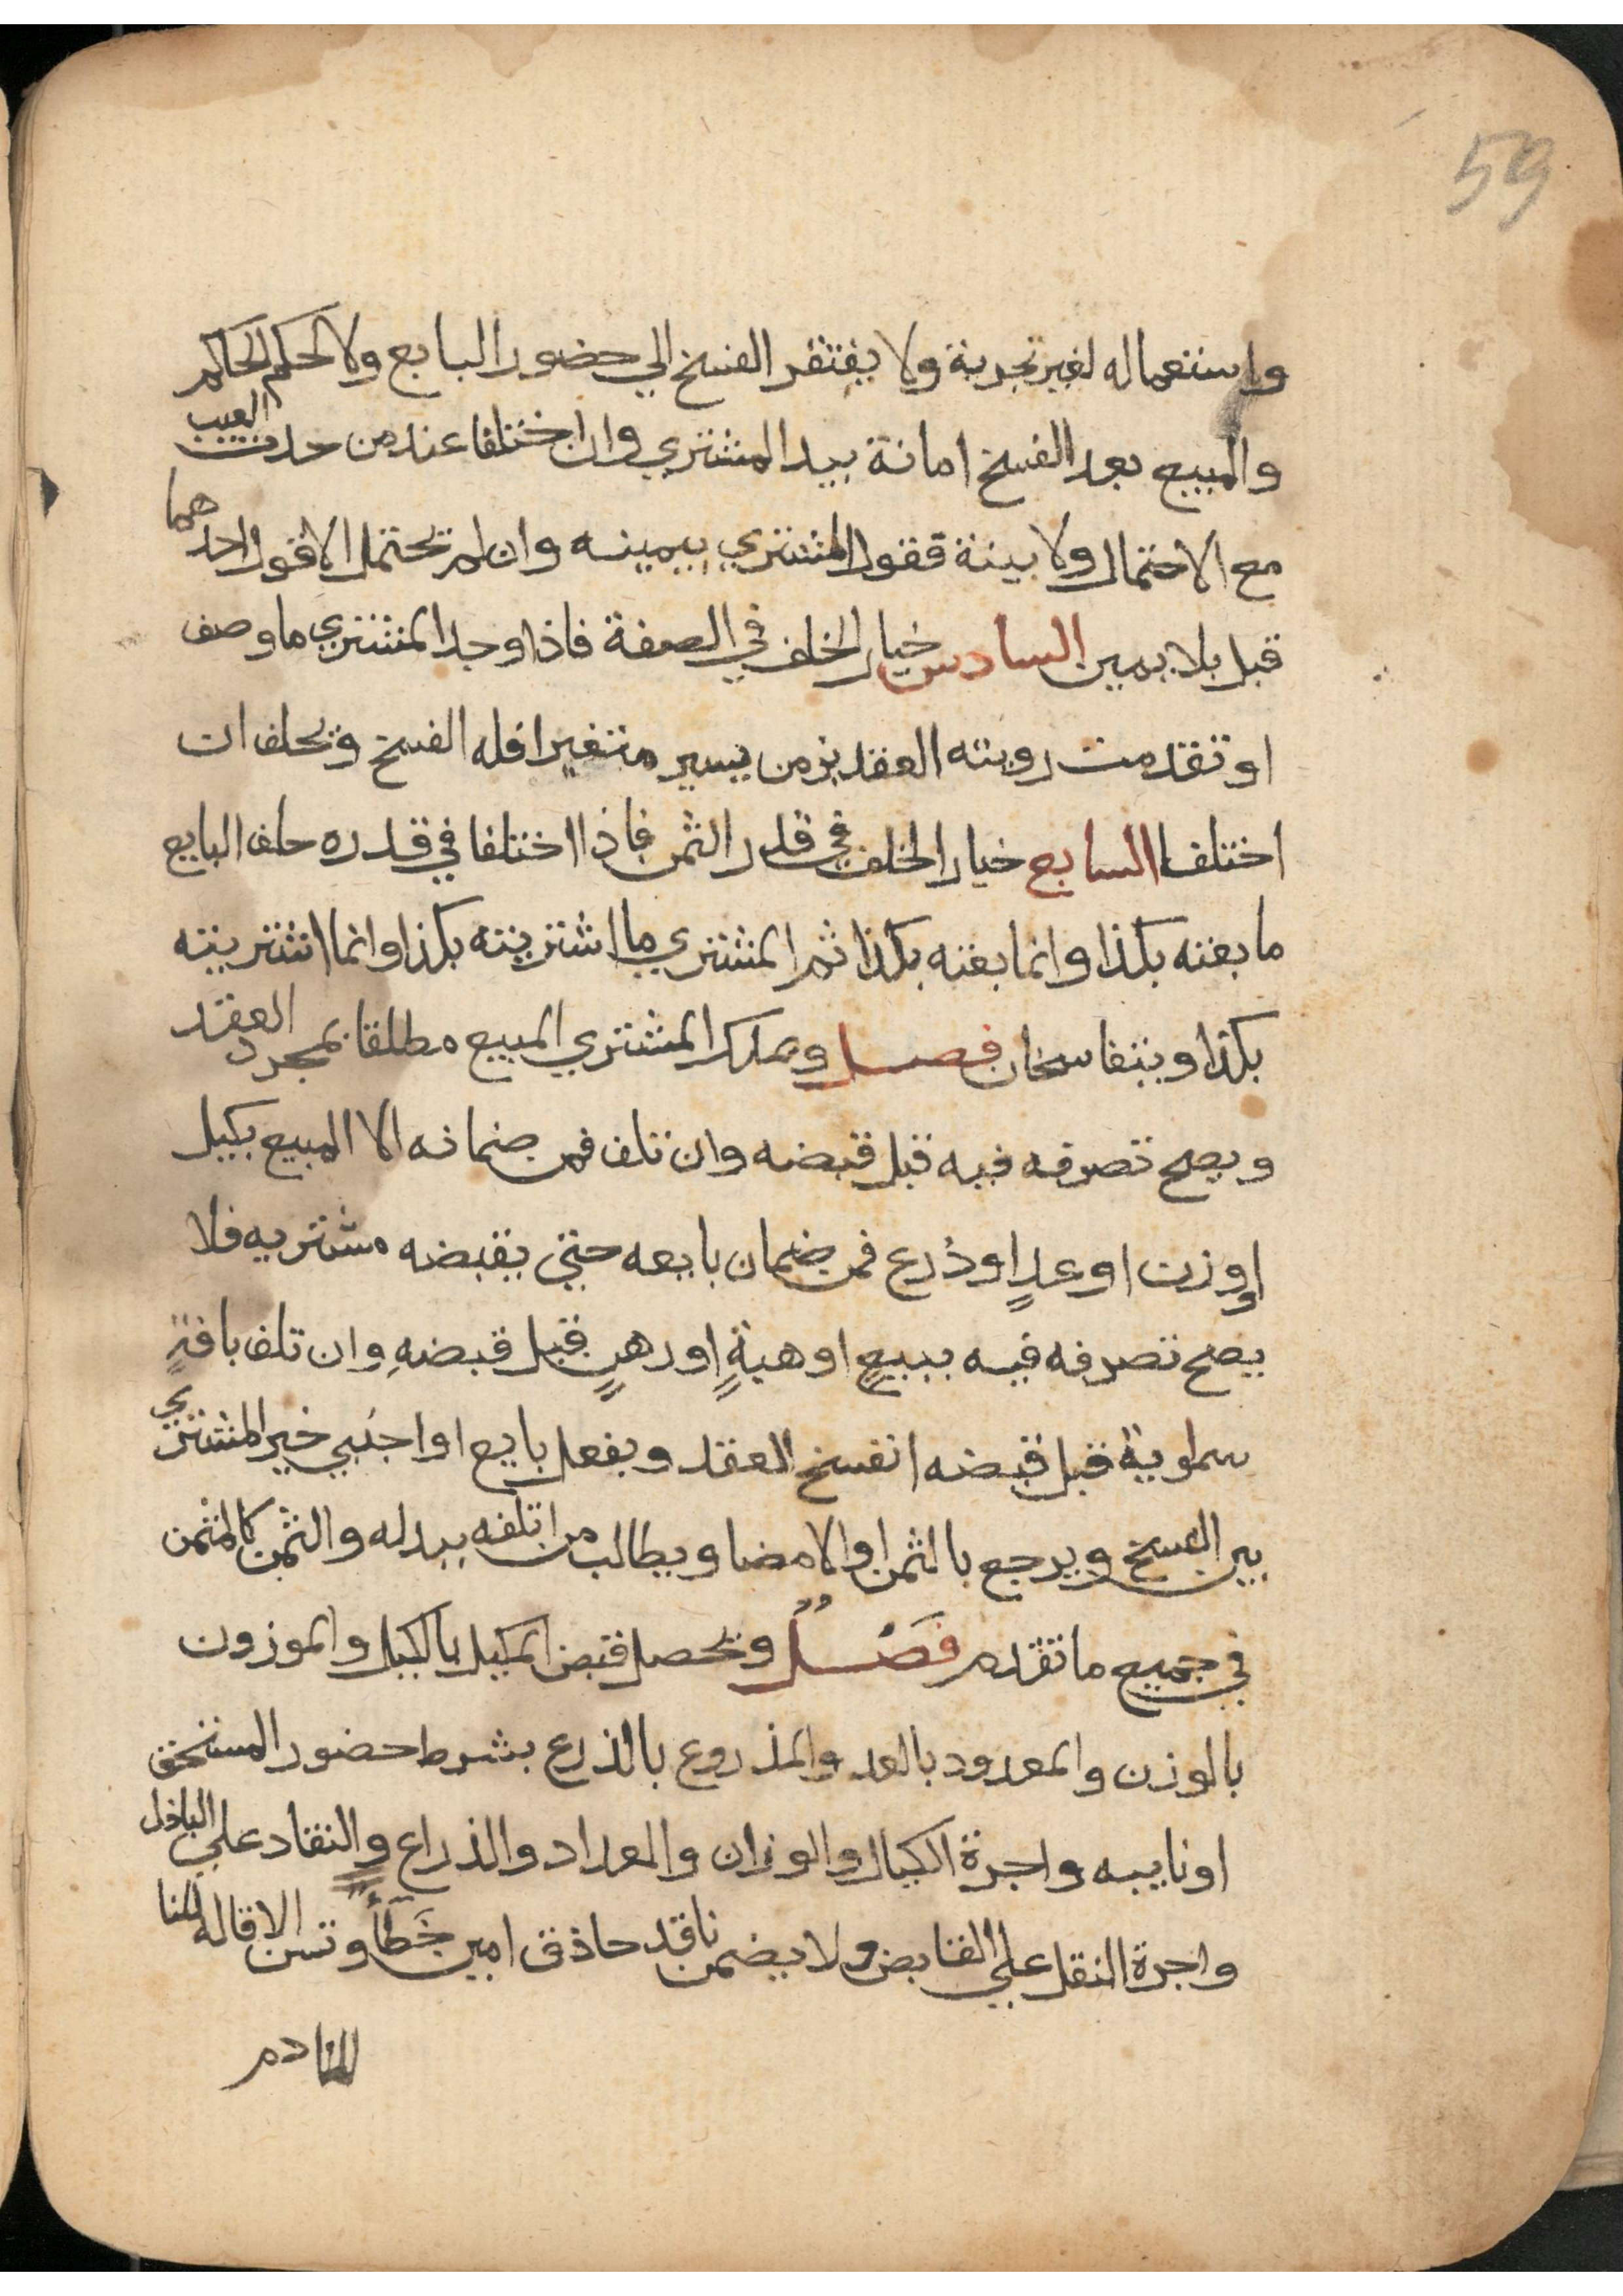 59
واستعماله لغير تجربة ولا يفتقر الفسخ الي حضور البايع ولا لحكم الحاكم
والمبيع بعد الفسخ امانة بيد المشتري وان اختلفا عند من حدث العيب
مع الاحتمال ولا بينة فقول المشتري بيمينه وان لم يحتمل الا قول احدهما
قبل بلا يمين السادس خيار الخلف في الصفة فاذا وجد المشتري ما وصف
او تقدمت رويته العقد بزمن يسير متغيرا فله الفسخ ويحلف ان
اختلفا السابع خيار الخلف في قدر الثمن فاذا اختلفا في قدره حلف البايع
ما بعته بكذا وانما بعته بكذا ثم المشتري ما اشتريته بكذا وانما اشتريته
بكذا ويتفاسخان فصل ويملك المشتري المبيع مطلقا بمجرد العقد
ويصح تصرفه فيه قبل قبضه وان تلف فمن ضمانه الا المبيع بكيل
او وزن او عدٍ او ذرع فمن ضمان بايعه حتي يقبضه مشتريه فلا
يصح تصرفه فيه ببيعٍ او هبةٍ او رهنٍ قبل قبضهِ وان تلف بافةٍ
سماوية قبل قبضه انفسخ العقد وبفعل بايع او اجنبي خير المشتري
بين الفسخ ويرجع بالثمن او الامضا ويطالب من اتلفه ببدله والثمن كالمثمن
في جميع ما تقدم فَصْلٌ ويحصل قبض المكيل بالكيل والموزون
بالوزن والمعدود بالعد والمذروع بالذرع بشرط حضور المستحق
او نايبه واجرة الكيال والوزان والعداد والذراع والنقاد علي الباذل
واجرة النقل علي القابض ولا يضمن ناقد حاذق امين خَطَأً وتسن الاقالة للنا
للنادم